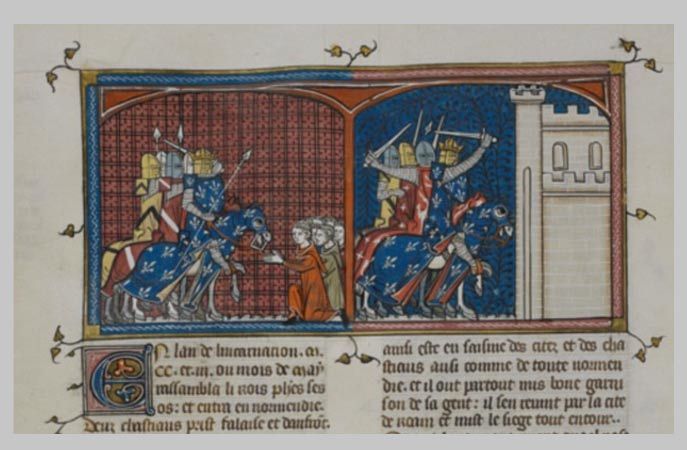 En lan de lincarnacion. m.
cc. et. iii. ou mois de may
rassambla li rois phes ses
os: et entra en normendie.
Deux chastiaus prist falaise et danfrot.
ainsi este en saisine des citez et des cha
stiaus ausi comme de toute normen
die. et il out partout mis bone garni
son de sa gent: il sen revint par la cite
de roam et mist le siege tout entour.